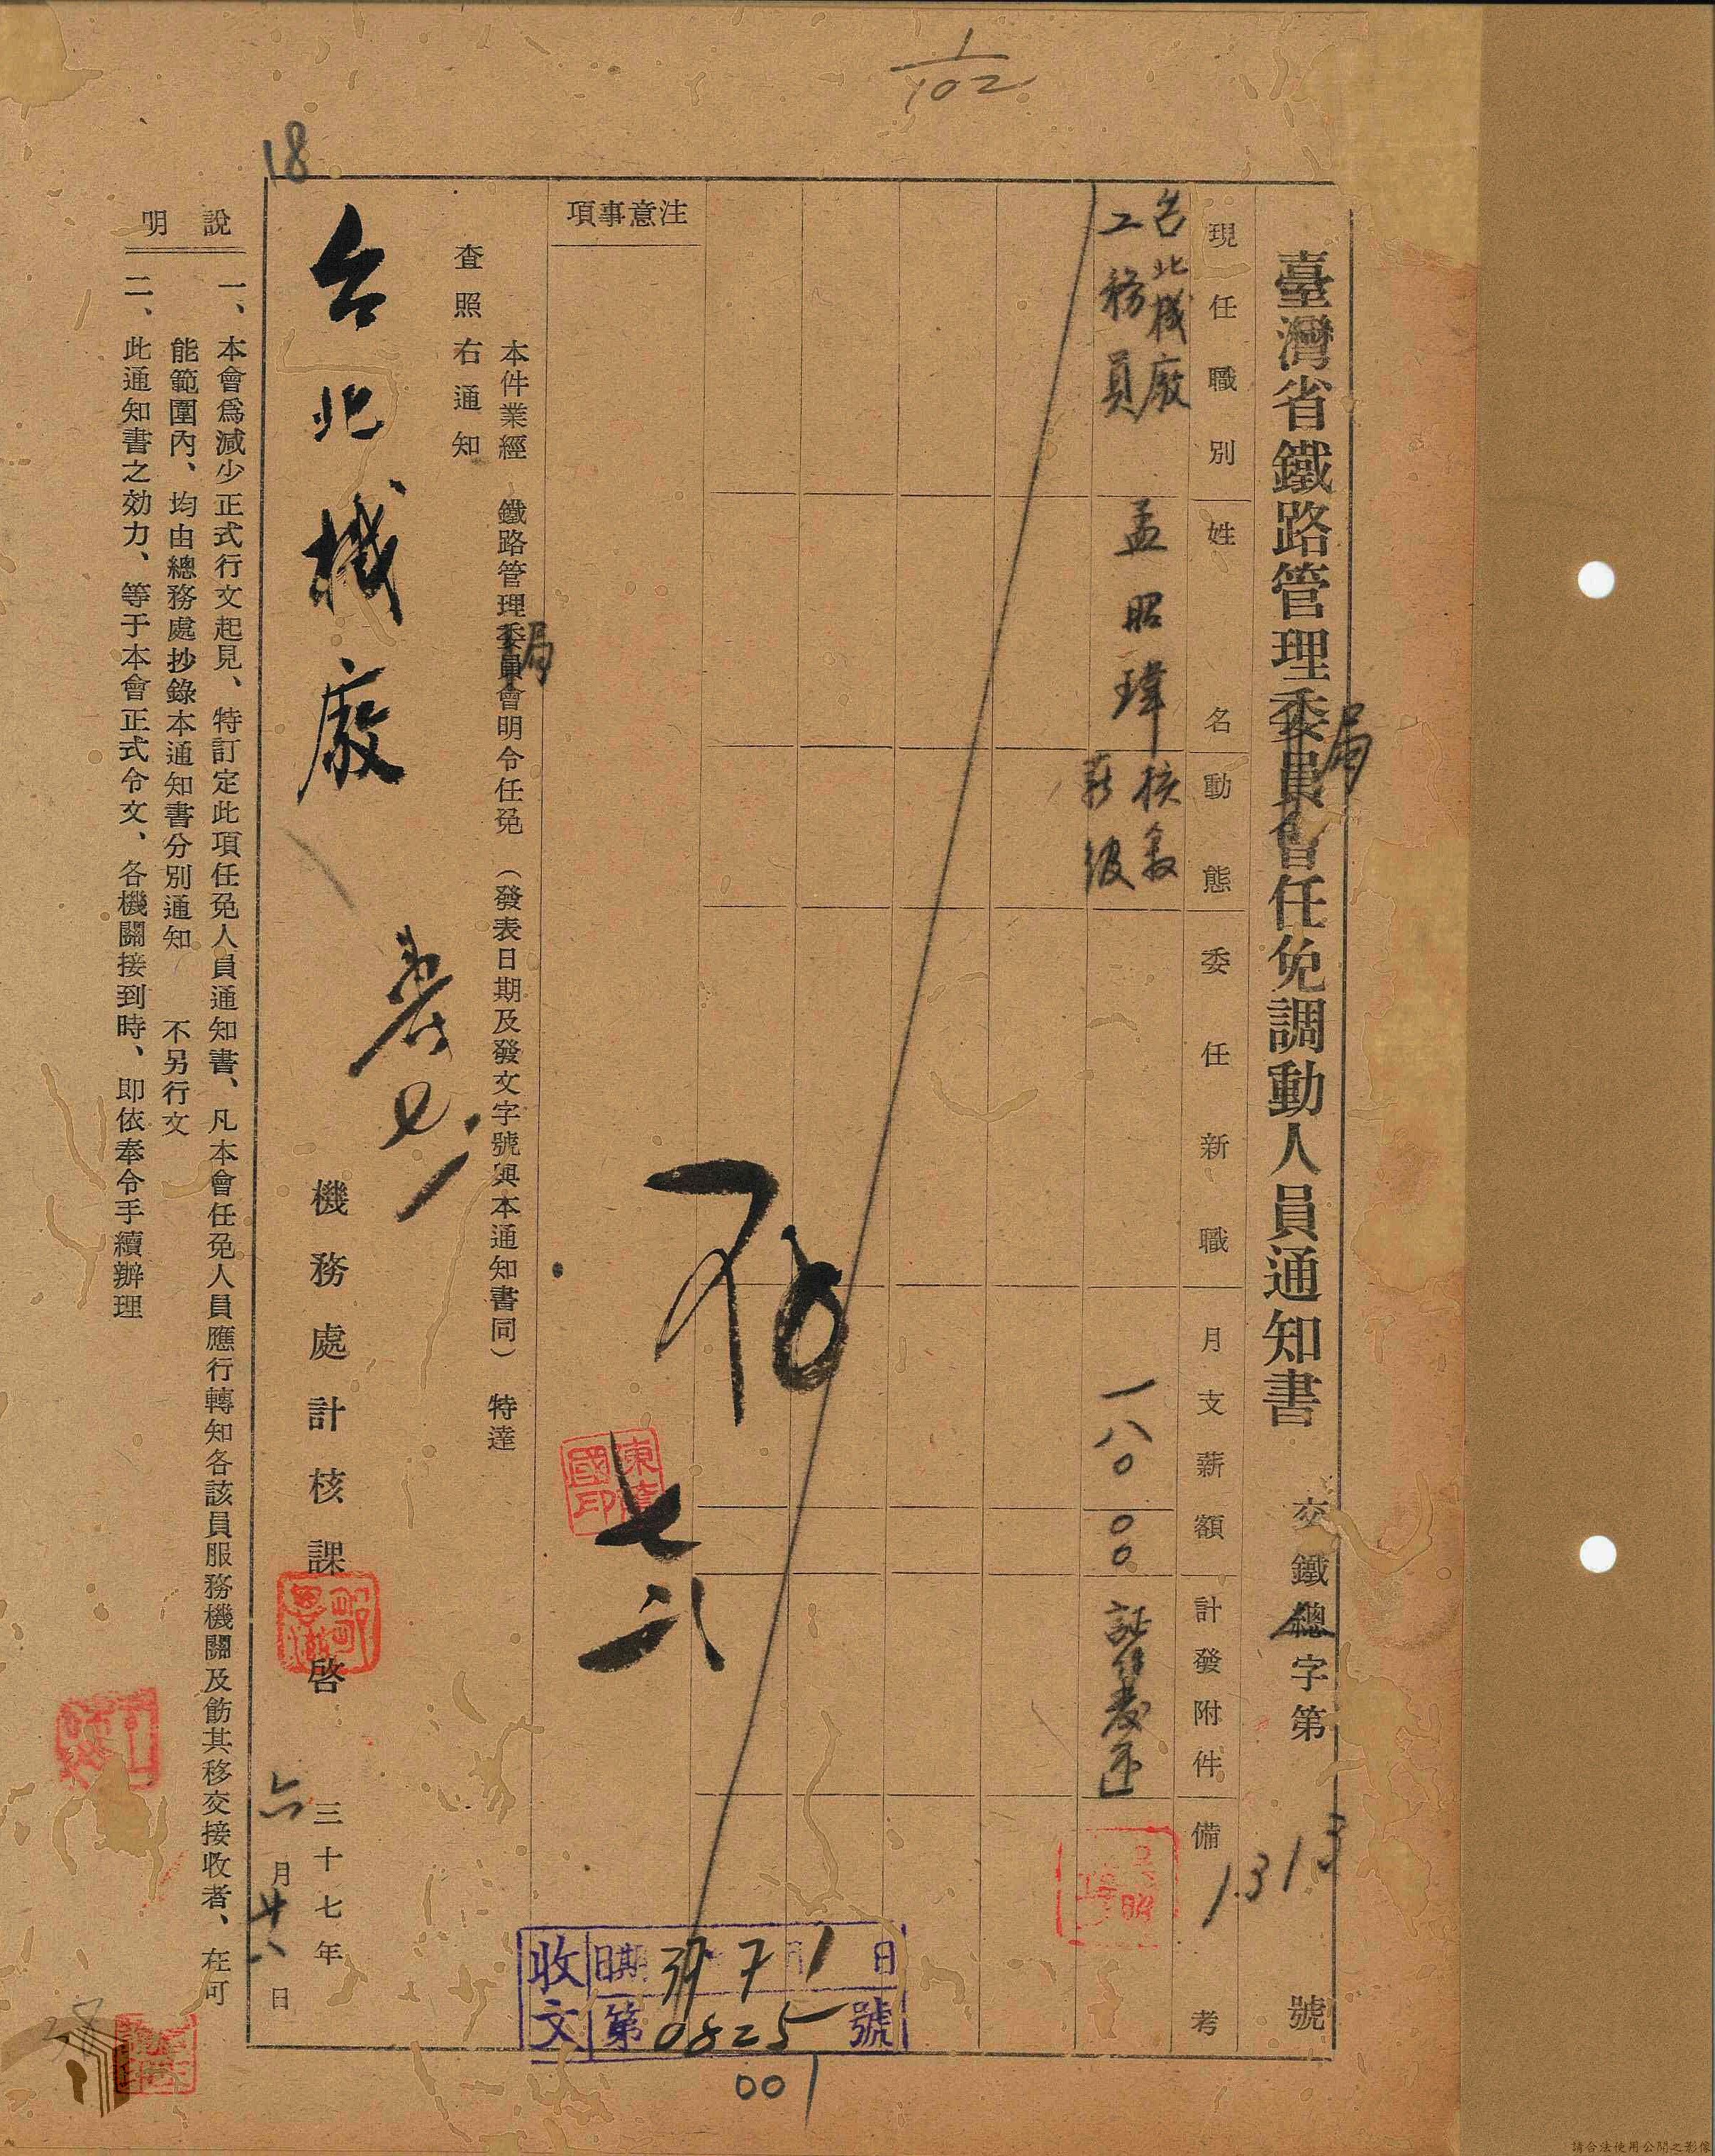 1/102
18
臺灣省鐵路管理委員會任免調動人員通知書
局
交鐵總字第13113號
人
現任職別
姓名
動態
委任新職
月支薪額
計發附件
備考
台北機廠
工務員
孟昭瑋
核敘
薪級
一八〇
〇〇
注意事項
本件業經 鐵路管理委員會明令任免（發表日期及發文字號與本通知書同） 特達
局
查照右通知
台北機廠
機務處計核課啓
三十七年
六月廿八日
存
七
說明
一、本會爲減少正式行文起見、特訂定此項任免人員通知書、凡本會任免人員應行轉知各該員服務機關及飭其移交接收者、在可
能範圍內、均由總務處抄錄本通知書分別通知 不另行文
二、此通知書之効力、等于本會正式令文、各機關接到時、即依奉令手續辦理
收文
日期 37 7 1 日
第0825號
001
請合法使用公開之影像